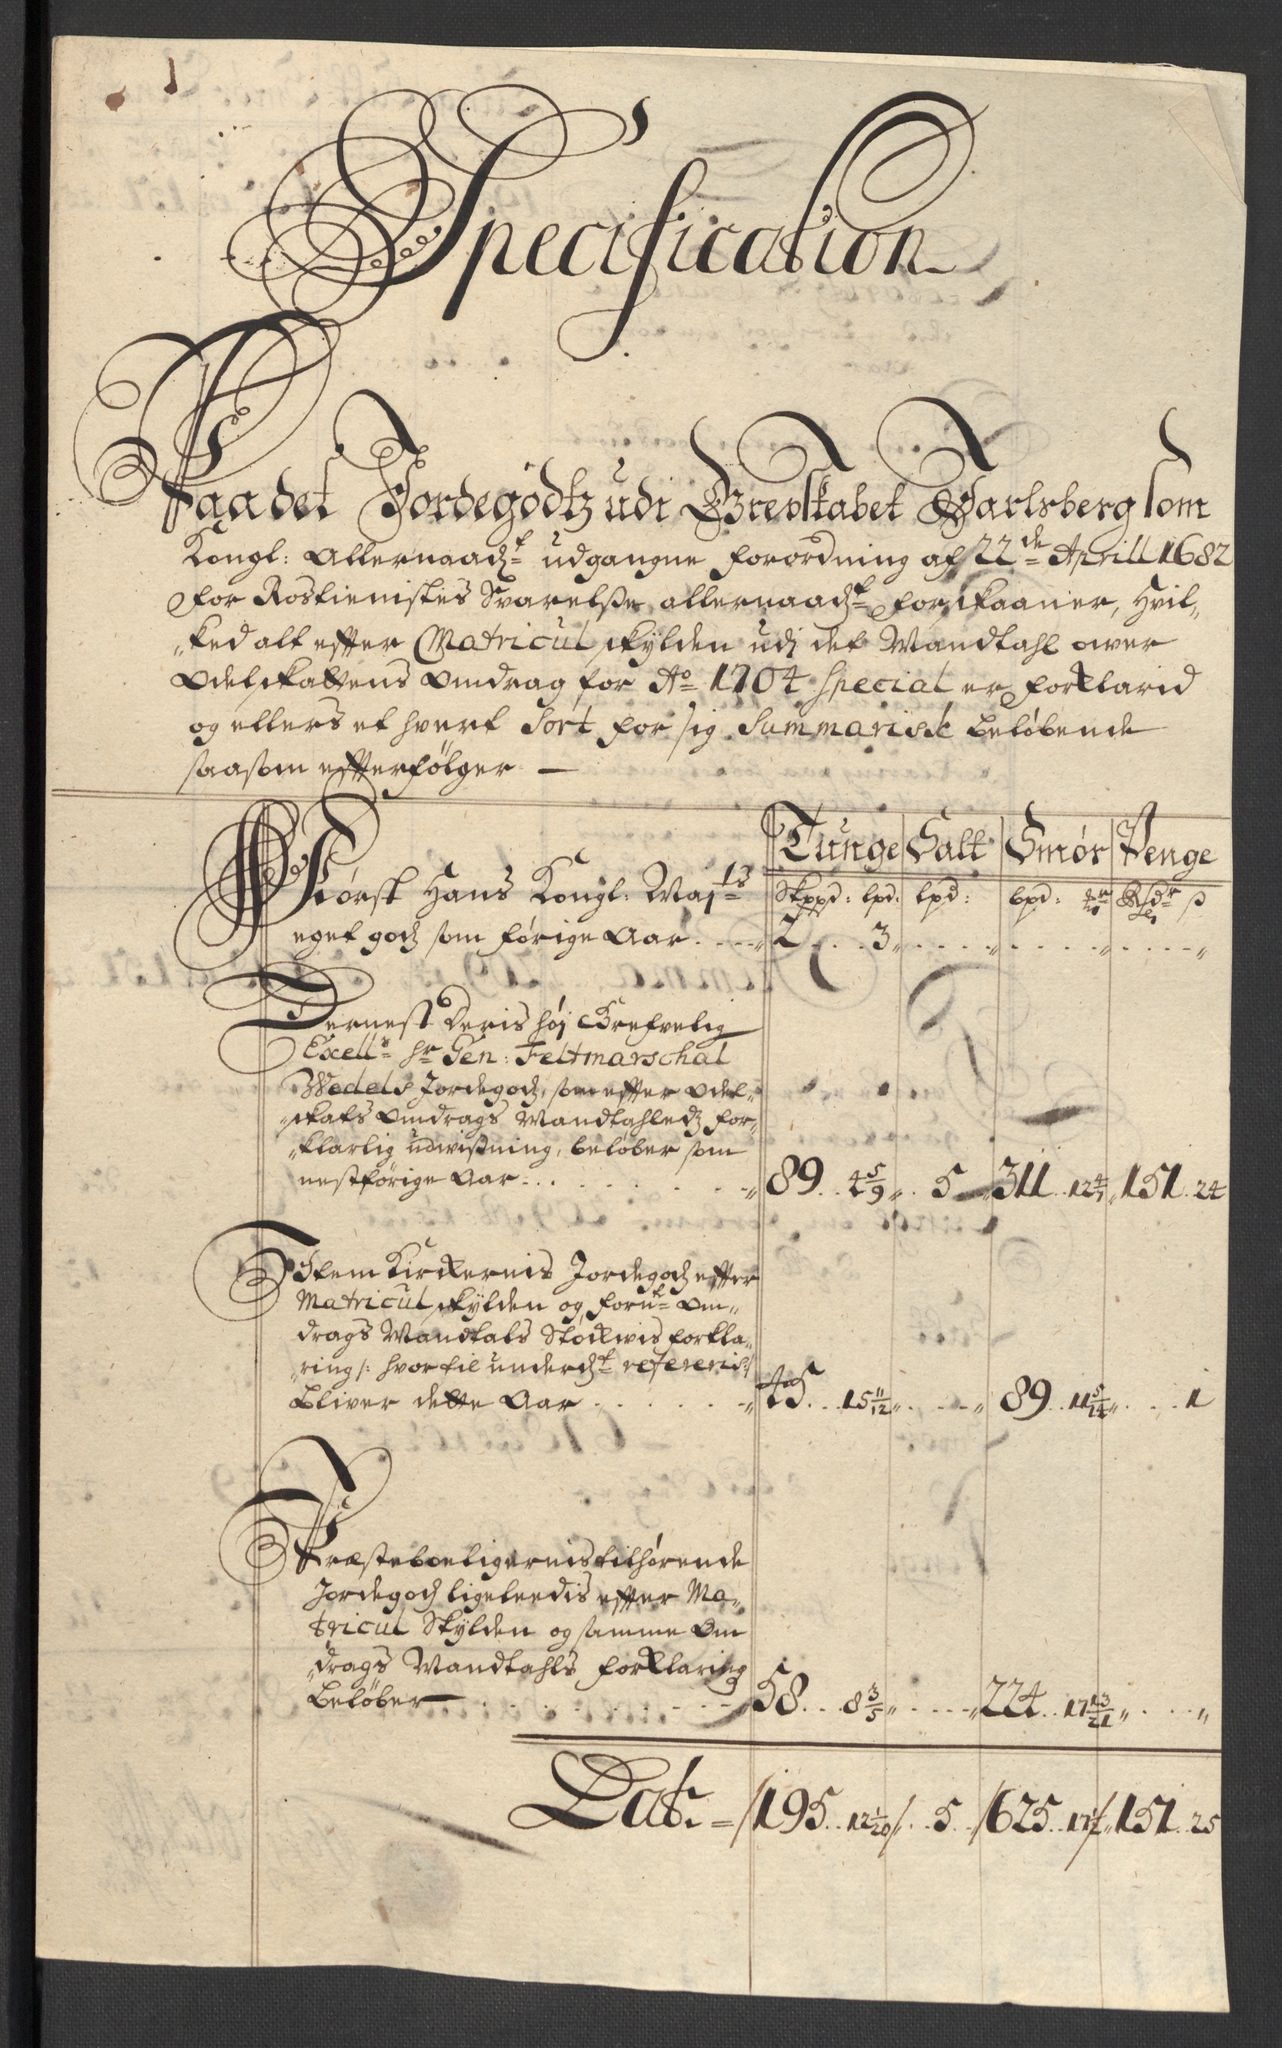 Specification
Paa det Jordegodtz udi Grevskabet Jarlsberg som
Kongl: Allernaad:t udgangne forordning af 22de Aprill 1682
for Rostienistes Svarelsse allernaad:t forskaaner, Hvil-
„ked alt effter Matricul skylden udj det Mandtahl over
Odelskattens Omdrag for Ao 1704 special er forklarid
og ellers et hvert sort for sig Summarisk beløbende
saasom efterfølger —
Tunge Salt Smør Penge
Først Hans Kongl: Maj:ts Skppd: lpd: lpd: bpd: mr Rsdr ß
eget godz som forige Aar . . . . „ 2 . . . 3 „ . . . . „ . . . . „ . . . . „
Dernest Deris høj Grefvelig
Excell:s hr Gen: Feltmarschal
Wedels Jordegodz, som effter Odel-
„skats Omdrags Mandtahledz for-
„klarlig udwissning, beløber som
nestforige Aar . . . . . „ 89 . . 4 5/9 „ . . 5 „ 311 . . 12 4/7 „ 151 . 24
Item Kirckernis Jordegodz effter
Matricul skylden og forn:t Om-
drags Mandtals Stockvis forkla-
„ring /: hvortil underd:t refereris :/
bliver dette Aar . . . . . „ 45 . . 15 11/12 „ . . . „ 89 . 11 5/14 „ . . . 1
Præsteboeligernis tilhørende
Jordegodz ligeleedis effter Ma-
tricul Skylden og samme Om
„drags Mandtahls forklaring
beløber — . . . . . „ 58 . . 8 3/5 „ . . . „ 224 . . 17 13/21 „ . . . „
Lat: = /195 . . 12 1/20 / . . 5 . /625 . . 17 1/2 /„ 151 . 25